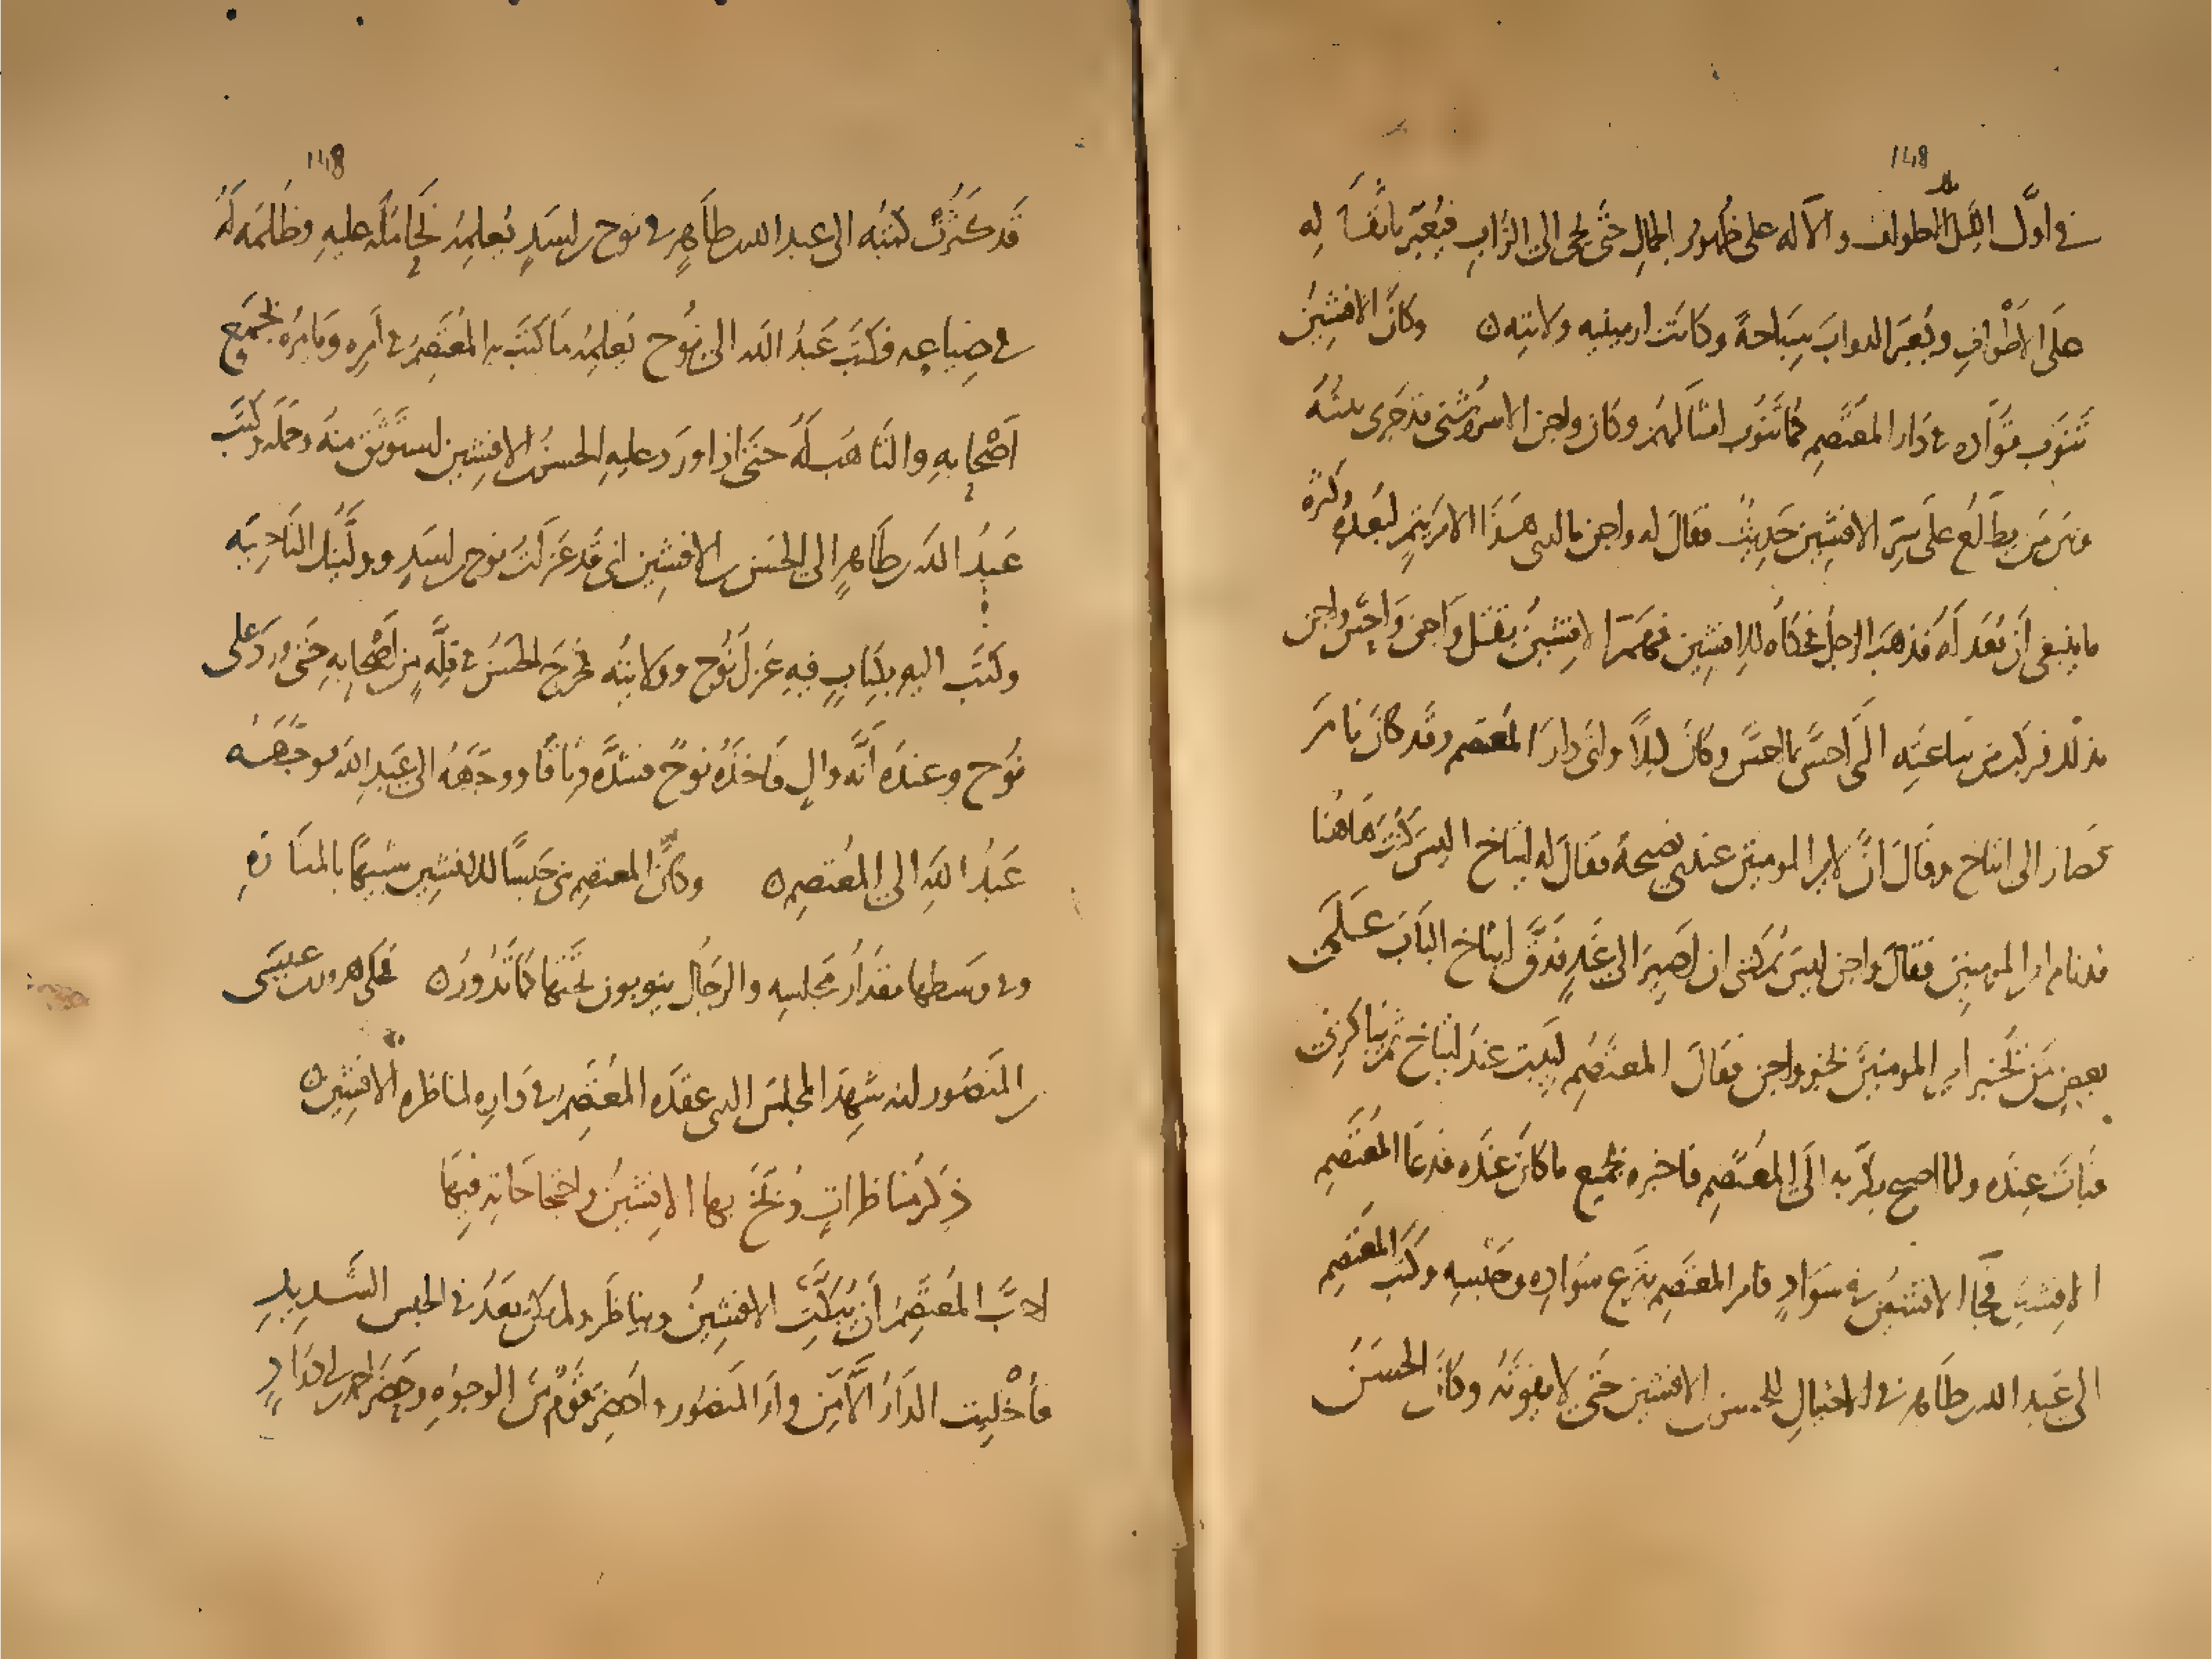 148
في اول الليل الاطواف والاله على ظهور الجمال حتى يجى الى الزاب فيعبر باثقاله
على الاطواف ويعبر الدواب سباحة وكانت ارمينيه ولايته ه وكان الافشين
تنوب قواده في دار المعتصم كما تنوب امثالهم وكان واجن الاسروشنى قد جرى بينه
وبين من يطلع على سر الافشين حديث فقال له واجن ما ارى هذا الامر يتم لبعده وكثرة
ما ينبغى ان يعد له فذهب الرجل فحكاه للافشين فهم الافشين بقتل واجن واحس واجن
بذلك فركب من ساعته التى احس بما احس وكان ليلا واتى دار المعتصم وقد كان نام
فصار الى ايتاخ وقال ان لامير المومنين عندى نصيحة فقال له ايتاخ اليس كنت هاهنا
قد نام امير المومنين فقال واجن ليس يمكنى ان اصير الى غد فدق ايتاخ الباب على
بعض من يخبر امير المومنين بخبر واجن فقال المعتصم يبيت عند ايتاخ ثم يباكرنى
فبات عنده ولما اصبح بكر به الى المعتصم فاخبره بجميع ما كان عنده فدعا المعتصم
الافشين فجا الافشين في سواد فامر المعتصم بنزع سواده وحبسه وكتب المعتصم
الى عبد الله بن طاهر في الاحتيال للحسن بن الافشين حتى لا يفوته وكان الحسن
148
قد كثرت كتبه الى عبد الله بن طاهر في نوح بن اسد يعلمه تحامله عليه وظلمه له
في ضياعه فكتب عبد الله الى نوح يعلمه ما كتب به المعتصم في امره ويامره بجمع
اصحابه والتاهب له حتى اذا ورد عليه الحسن بن الافشين استوثق منه وحمله وكتب
عبد الله بن طاهر الى الحسن بن الافشين انى قد عزلت نوح بن اسد ووليتك الناحيه
وكتب اليه بكتاب فيه عزل نوح وولايته فخرج الحسن في قلة من اصحابه حتى ورد على
نوح وعنده انه وال فاخذه نوح فشده وثاقا ووجهه الى عبد الله فوجهه
عبد الله الى المعتصم ه وكان المعتصم بنى حبسا للافشين شبيها بالمنارة
وفي وسطها مقدار مجلسه والرجال ينوبون تحتها كما تدور ه فحكى هرون بن عيسى
بن المنصور انه شهد المجلس الذى عقده المعتصم في داره لمناظره الافشين ه
ذكر مناظرات وبخ بها الافشين واحتجاجاته فيها
احب المعتصم ان يبكت الافشين ويناظر ولم يكن بعد في الحبس الشديد
فاخليت الدار الا من ولد المنصور واحضر قوم من الوجوه وحضر احمد بن ابى دواد